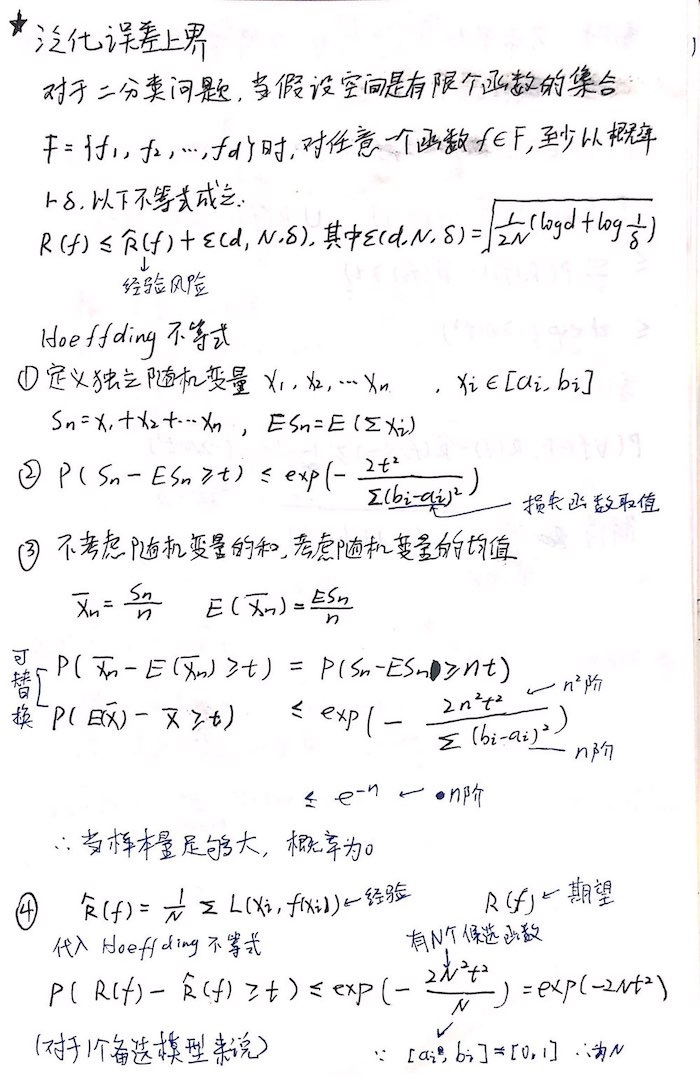 ★ 泛化误差上界
对于二分类问题,当假设空间是有限个函数的集合
F={f1, f2, …, fd}时,对任意一个函数f∈F,至少以概率
1-δ,以下不等式成立:
R(f) ≤ R̂(f) + ε(d, N, δ), 其中ε(d, N, δ) = √(1/2N (logd + log 1/δ))
↓
经验风险
Hoeffding 不等式
① 定义独立随机变量 X1, X2, …Xn , Xi∈[ai, bi]
Sn = X1+X2+…Xn , ESn = E(ΣXi)
② P(Sn - ESn ≥ t) ≤ exp(- 2t²/Σ(bi-ai)²) ← 损失函数取值
③ 不考虑随机变量的和,考虑随机变量的均值
X̄n = Sn/n E(X̄n) = ESn/n
可替换
P(X̄n - E(X̄n) ≥ t) = P(Sn - ESn ≥ nt)
P(E(X̄) - X̄ ≥ t) ≤ exp(- 2n²t²/Σ(bi-ai)²) ← n²阶
n阶
≤ e⁻ⁿ ← n阶
∴ 当样本量足够大, 概率为0
④ R̂(f) = 1/N Σ L(Xi, f(Xi)) ← 经验 R(f) ← 期望
代入 Hoeffding 不等式 有N个候选函数
P(R(f) - R̂(f) ≥ t) ≤ exp(- 2N²t²/N) = exp(-2Nt²)
(对于1个备选模型来说) ∵ [ai, bi] = [0, 1] ∴为N